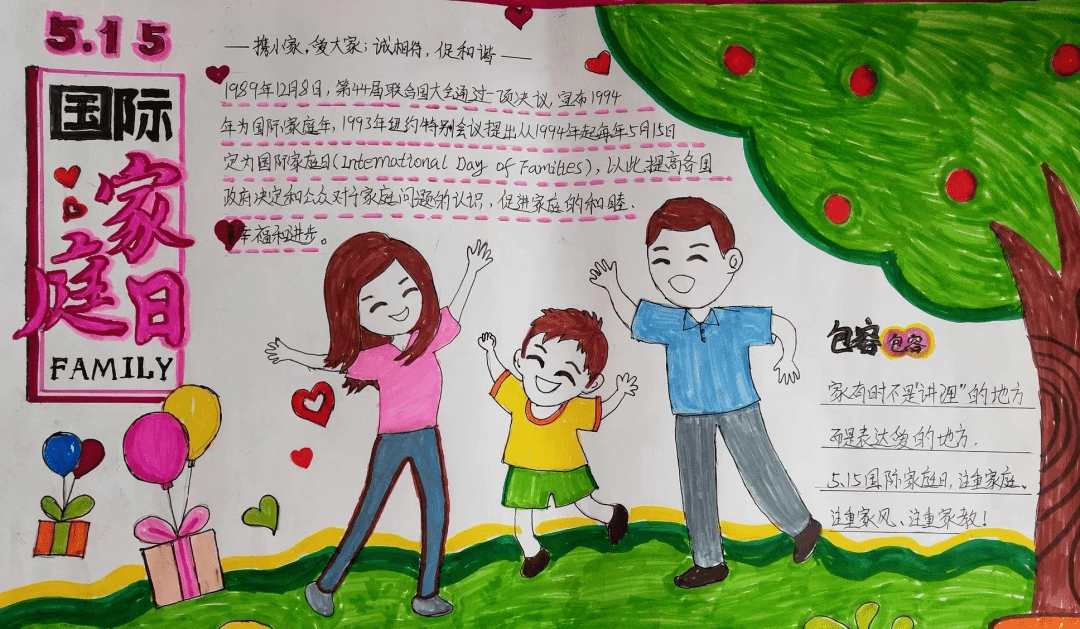 5.15
国际
家
庭日
FAMILY
——携小家，爱大家；诚相待，促和谐——
1989年12月8日，第44届联合国大会通过一项决议，宣布1994
年为国际家庭年，1993年纽约特别会议提出从1994年起每年5月15日
定为国际家庭日(International Day of Families)，以此提高各国
政府决定和公众对于家庭问题的认识，促进家庭的和睦、
幸福和进步。
包容 包容
家有时不是“讲理”的地方
而是表达爱的地方.
5.15国际家庭日，注重家庭、
注重家风、注重家教！